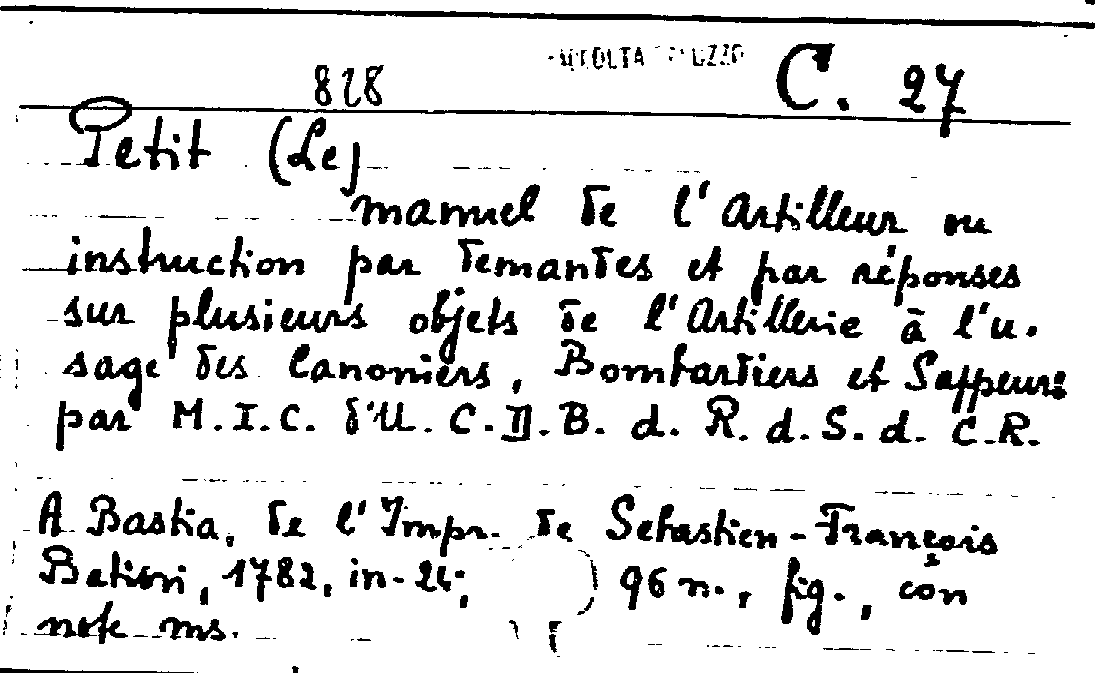 828 RACCOLTA C. 27
Petit (Le)
manuel de l'Artilleur ou
instruction par demandes et par réponses
sur plusieurs objets de l'Artillerie à l'u.
sage des Canoniers, Bombardiers et Sappeurs
par M.I.C. d'U. C.D.B. d. R. d. S. d. C.R.
A Bastia, de l'Impr. de Sebastien-François
Batini, 1782, in-24; 96 n., fig., con
note ms.